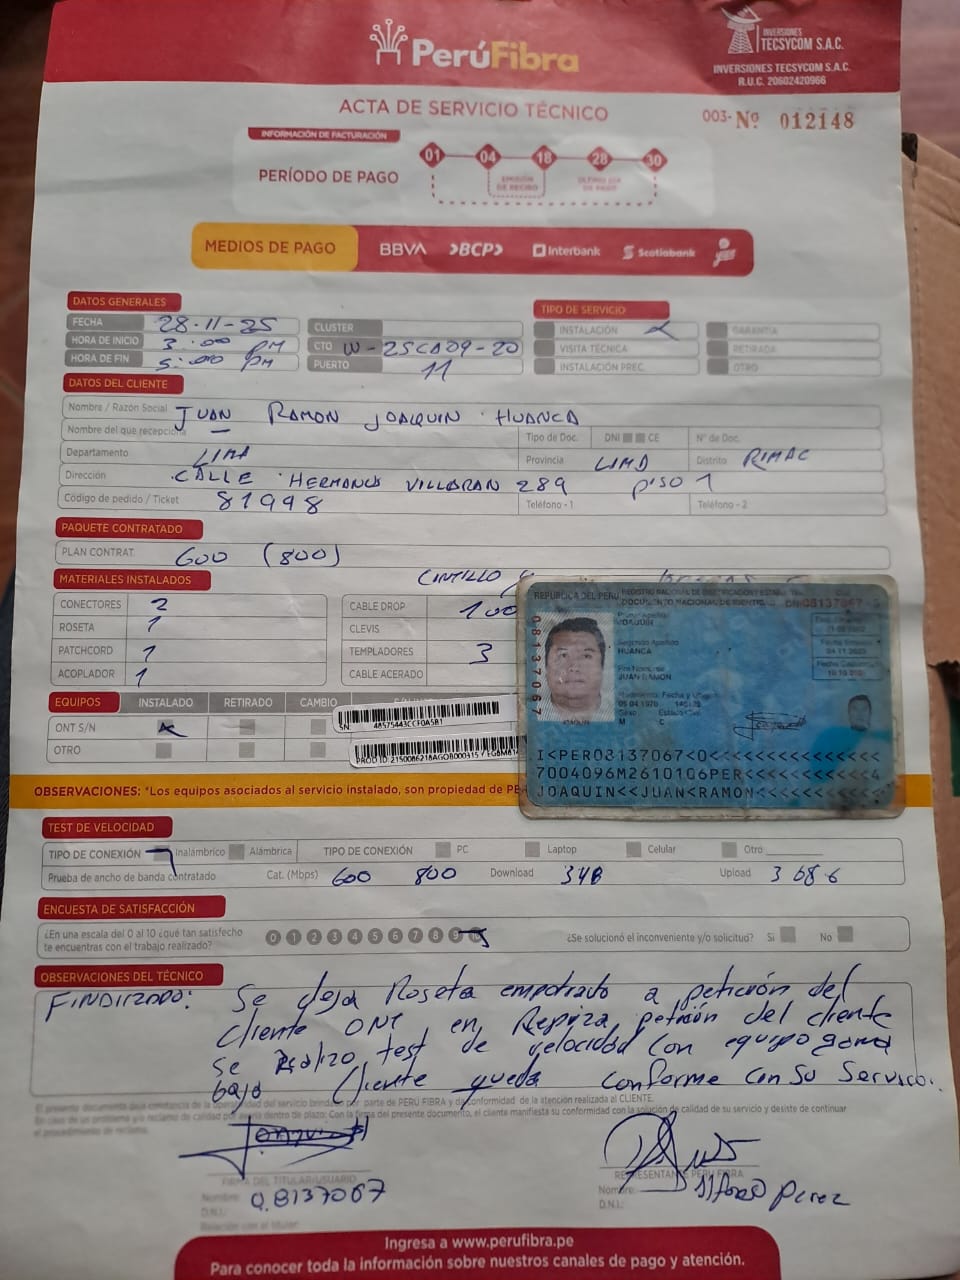 PerúFibra
INVERSIONES
TECSYCOM S.A.C.
INVERSIONES TECSYCOM S.A.C.
R.U.C. 20602420966
ACTA DE SERVICIO TÉCNICO
003-Nº 012148
INFORMACIÓN DE FACTURACIÓN
PERÍODO DE PAGO
01 04 18 28 30
EMISIÓN DE RECIBO
ÚLTIMO DÍA DE PAGO
MEDIOS DE PAGO BBVA BCP Interbank Scotiabank yape
DATOS GENERALES
FECHA 28-11-25
HORA DE INICIO 3:00 PM
HORA DE FIN 5:00 PM
CLUSTER
CTO W-25CA09-20
PUERTO 11
TIPO DE SERVICIO
INSTALACIÓN x GARANTIA
VISITA TÉCNICA RETIRADA
INSTALACIÓN PREC. OTRO
DATOS DEL CLIENTE
Nombre / Razón Social JUAN RAMON JOAQUIN HUANCA
Nombre del que recepciona — Tipo de Doc. DNI CE N° de Doc.
Departamento LIMA Provincia LIMA Distrito RIMAC
Dirección CALLE HERMANOS VILLARAN 289 PISO 1
Código de pedido / Ticket 81998 Teléfono - 1 Teléfono - 2
PAQUETE CONTRATADO
PLAN CONTRAT. 600 (800)
MATERIALES INSTALADOS
CINTILLO 4
CONECTORES 2
ROSETA 1
PATCHCORD 1
ACOPLADOR 1
CABLE DROP 100
CLEVIS
TEMPLADORES 3
CABLE ACERADO
EQUIPOS INSTALADO RETIRADO CAMBIO
ONT S/N x
OTRO
SN: 48575443CCF0A5B1
REPÚBLICA DEL PERÚ REGISTRO NACIONAL DE IDENTIFICACIÓN Y ESTADO CIVIL
DOCUMENTO NACIONAL DE IDENTIDAD DNI 08137067
08137067
Primer Apellido
JOAQUIN
Segundo Apellido
HUANCA
Pre Nombres
JUAN RAMON
05 04 1970
M C
I<PER08137067<0<<<<<<<<<<<<<<<
7004096M2610106PER<<<<<<<<<<<4
JOAQUIN<<JUAN<RAMON<<<<<<<<<<<
OBSERVACIONES: *Los equipos asociados al servicio instalado, son propiedad de PE
TEST DE VELOCIDAD
TIPO DE CONEXIÓN Inalámbrico Alámbrica TIPO DE CONEXIÓN PC Laptop Celular Otro
Prueba de ancho de banda contratado Cat. (Mbps) 600 800 Download Upload
ENCUESTA DE SATISFACCIÓN
¿En una escala del 0 al 10 ¿qué tan satisfecho
te encuentras con el trabajo realizado?
0 1 2 3 4 5 6 7 8 9
¿Se solucionó el inconveniente y/o solicitud? Si No
OBSERVACIONES DEL TÉCNICO
FINALIZADO: Se deja Roseta empotrado a petición del
cliente ONT en Repriza petición del cliente
se realizo test de velocidad con equipo gama
baja Cliente queda Conforme con su Servicio.
El presente documento deja constancia de la operatividad del servicio brindado por parte de PERÚ FIBRA y de conformidad de la atención realizada al CLIENTE.
FIRMA DEL TITULAR/USUARIO
Nombre:
D.N.I.: 08137067
Relación con el titular:
REPRESENTANTE PERÚ FIBRA
Nombre: Perez
D.N.I.:
Ingresa a www.perufibra.pe
Para conocer toda la información sobre nuestros canales de pago y atención.